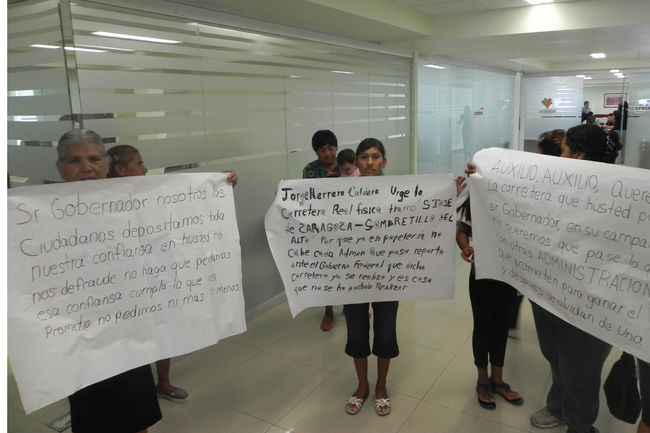 Sr Gobernador nosotros los
Ciudadanos depositamos toda
nuestra confianza en husted no
nos defraude no haga que perdamos
esa confiansa cumpla lo que
Prometio no pedimos ni mas ni menos
Jorge Herrera Caldera Urge la
Carretera Real fisica tramo SJOSE
de ZARAGOZA-SOMBRETILLO DEL
ALTO Por que ya en papeleria no
Cabe cada Admon que pasa reporta
ante el Gobierno Federal que dicha
Carretera ya se realiza y es cosa
que no se ha podido Realizar
AUXILIO, AUXILIO, Quere
La carretera que husted po
sr Gobernador en su campa
no queremos que pase lo q
con otras ADMINISTRACION
que prometen para ganar el
y despues se olvidan de Uno